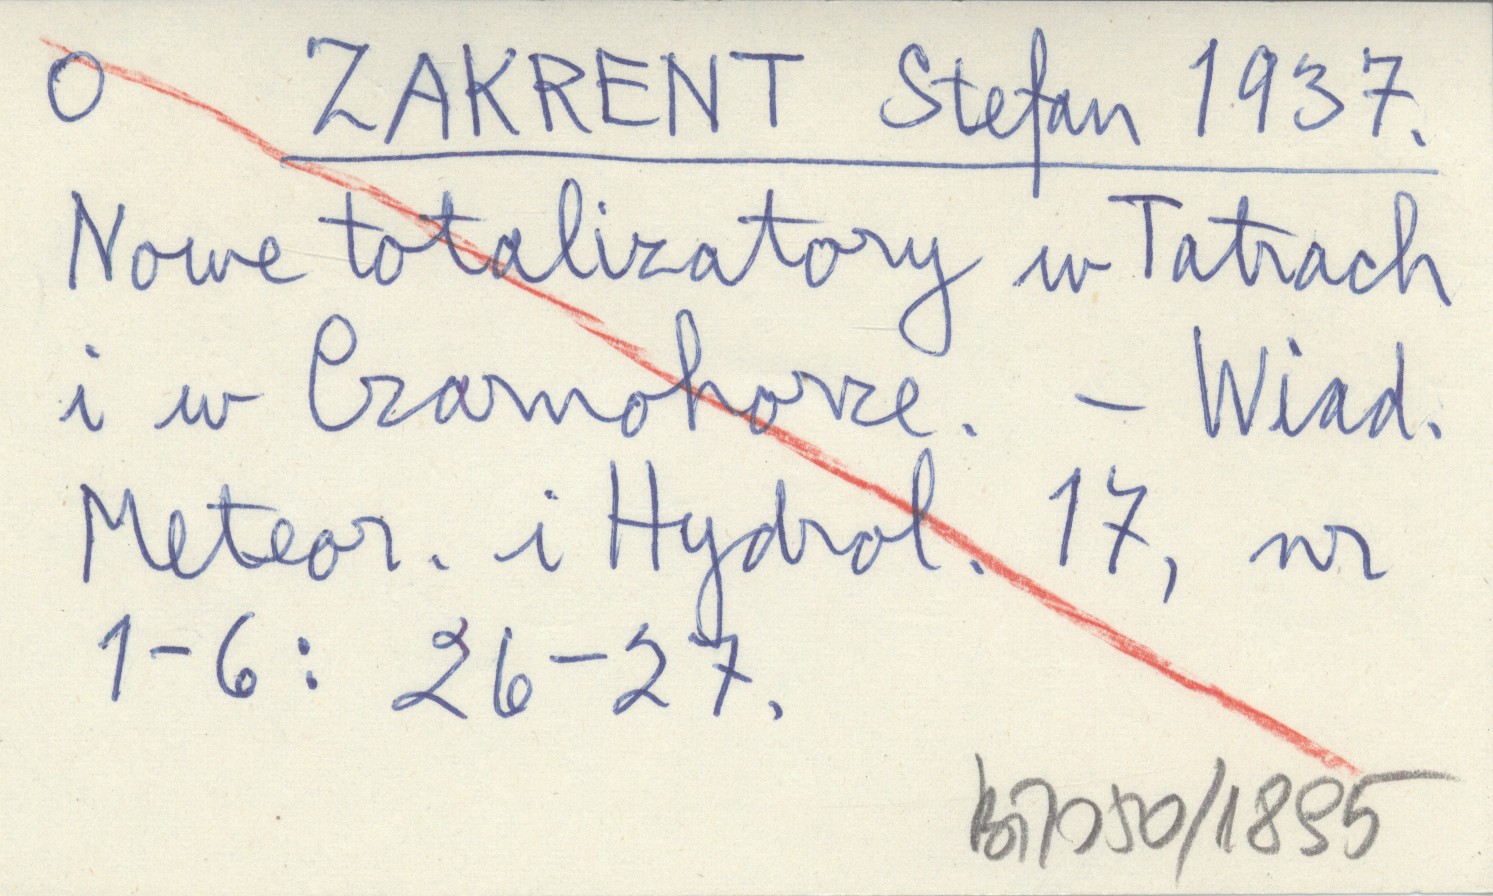 O ZAKRENT Stefan 1937.
Nowe totalizatory w Tatrach
i w Czarnohorze. – Wiad.
Meteor. i Hydrol. 17, nr
1-6: 26-27.
Bi7050/1895